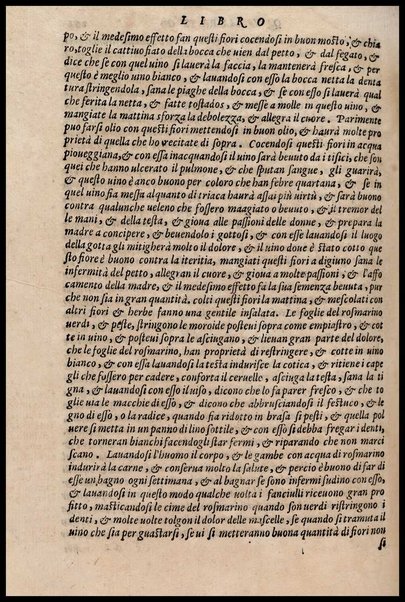 LIBRO
po, & il medesimo effetto fan questi fiori cocendosi in buon mosto, & chia
ro, toglie il cattiuo fiato della bocca che uien dal petto, & dal fegato, &
dice che se con quel uino si lauerà la faccia, la mantenerà fresca, & per
questo è meglio uino bianco, & lauandosi con esso la bocca netta la denta
tura stringendola, sana le piaghe della bocca, & se con esso si lauerà qual
che ferita la netta, & fatte tostados, & messe a molle in questo uino, &
mangiate la mattina sforza la debolezza, & allegra il cuore. Parimente
puo farsi olio con questi fiori mettendosi in buon olio, & haurà molte pro
prietà di quella che ho recitate di sopra. Cocendosi questi fiori in acqua
pioueggiana, & con essa inacquandosi il uino sarà beuuto da i tisici, che son
quei che hanno ulcerato il pulmone, & che sputan sangue, gli guarirà,
& questo uino è anco buono per coloro che han febre quartana, & se in
quel uino fia messa alquanto di triaca haurà assai più virtù, & sarà buono
contra qualunche ueleno che fossero maagiato o beuuto, & il tremor del
le mani, & della testa, & gioua alle passioni delle donne, & prepara la
madre a concipere, & beuendolo i gottosi, & con esse lauandosi il luogo
della gotta gli mitigherà molto il dolore, & il uino doue è stato cotto que
sto fiore è buono contra la iteritia, mangiati questi fiori a digiuno sana le
infermità del petto, allegran il cuore, & gioua a molte passioni, & l'affo
camento della madre, & il medesimo effetto fa la sua semenza beuuta, pur
che non sia in gran quantità, colti questi fiori la mattina, & mescolati con
altri fiori & herbe fanno una gentile insalata. Le foglie del rosmarino
uerdi, & peste, stringono le moroide posteui sopra come empiastro, & cot
te in uino, & posteui sopra le asciugano, & lieuan gran parte del dolore,
che le foglie del rosmarino, han proprietà di restringere, & cotte in uino
bianco, & con essa lauandosi la testa indurisce la cotica, & ritiene i cape
gli che fossero per cadere, conforta il ceruello, asciuga la testa, sana la ti
gna, & lauandosi con esso il uiso, dicono che lo fa parer fresco, & che to
glie uia le macchie di esso, & dicono che abbrusciandosi il festuco, & le
gno di esso, o la radice, quando fia ridotto in brasa si pesti, & quella pol
uere si metta in un panno di lino sottile, & con esso si debba fregar i denti,
che torneran bianchi facendogli star fermi, & riparando che non marci
scano. Lauandosi l'huomo il corpo, & le gambe con acqua di rosmarino
indurirà la carne, & conserua molto la salute, & percio è buono di far di
esse un bagno ogni settimana, & al bagnar se sono infermi sudino con esso,
& lauandosi in questo modo qualche uolta i fanciulli riceuono gran pro
fitto, masticandosi le cime del rosmarino quando son uerdi ristringono i
denti, & molte uolte tolgon il dolor delle mascelle, se quando si tramuta il
uino che sia per guastarsi, se ui si metteranno buona quantità di fiori non
si